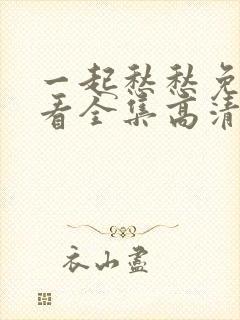 一起愁愁免
看全集高清
衣山盡